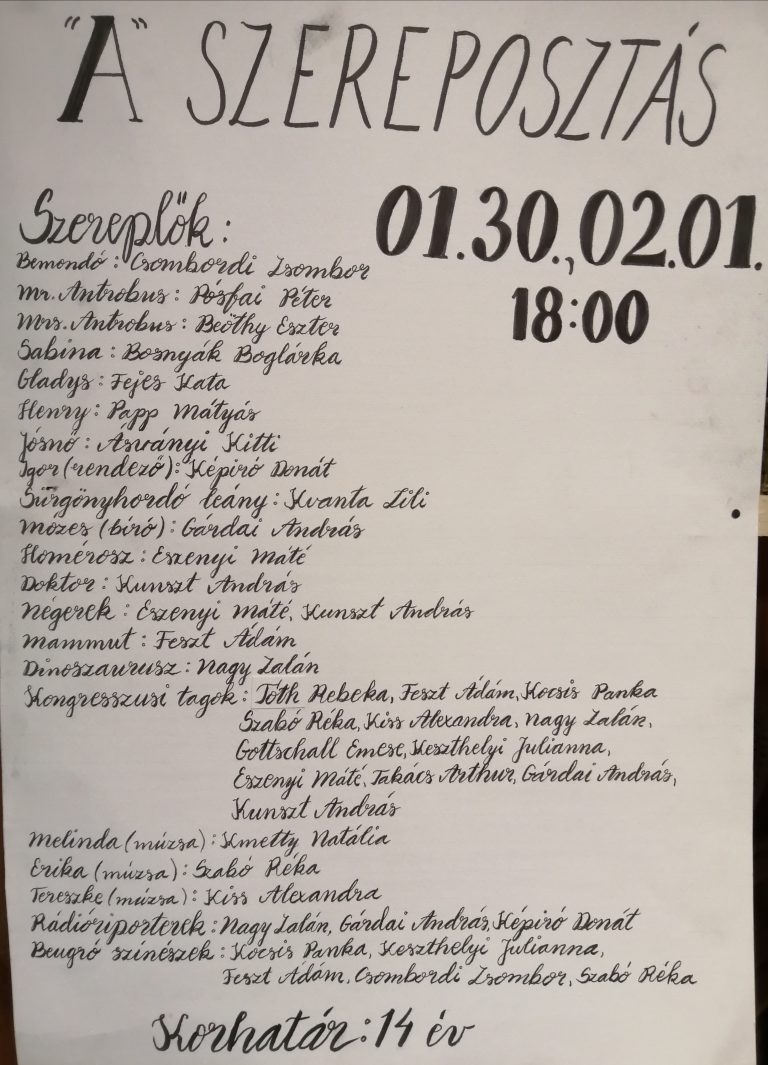 "A" SZEREPOSZTÁS
Szereplők:
01.30., 02.01.
18:00
Bemondó: Csombordi Zsombor
Mr. Antrobus: Pósfai Péter
Mrs. Antrobus: Beöthy Eszter
Sabina: Bosnyák Boglárka
Gladys: Fejes Kata
Henry: Papp Mátyás
Jósnő: Ásványi Kitti
Igor (rendező): Képíró Donát
Sürgönyhordó leány: Kvanta Lili
Mózes (bíró): Gárdai András
Homérosz: Eszenyi Máté
Doktor: Kunszt András
Négerek: Eszenyi Máté, Kunszt András
Mammut: Feszt Ádám
Dinoszaurusz: Nagy Zalán
Kongresszusi tagok: Tóth Rebeka, Feszt Ádám, Kocsis Panka
Szabó Réka, Kiss Alexandra, Nagy Zalán,
Gottschall Emese, Keszthelyi Julianna,
Eszenyi Máté, Takács Arthur, Gárdai András,
Kunszt András
Melinda (múzsa): Kmetty Natália
Erika (múzsa): Szabó Réka
Tereszke (múzsa): Kiss Alexandra
Rádióriporterek: Nagy Zalán, Gárdai András, Képíró Donát
Beugró színészek: Kocsis Panka, Keszthelyi Julianna,
Feszt Ádám, Csombordi Zsombor, Szabó Réka
Korhatár: 14 év